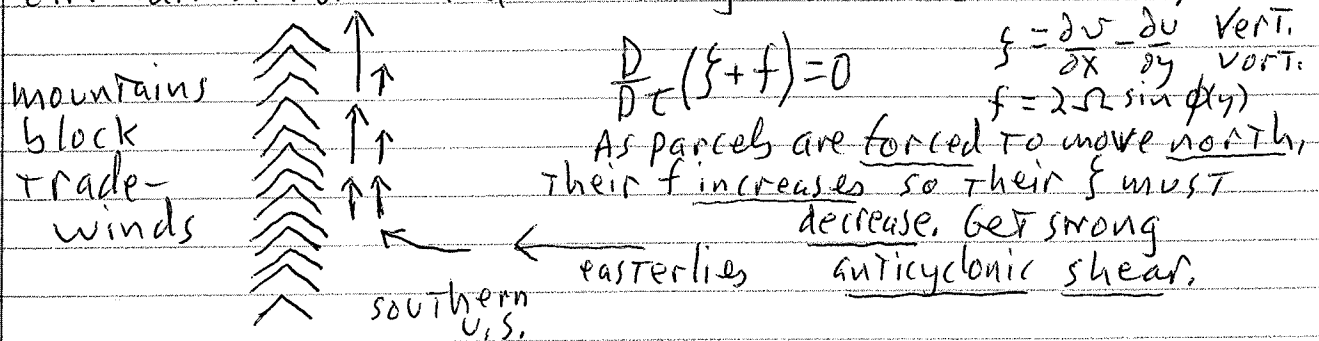 mountains
block
trade-
winds
D/Dt (ζ+f)=0
ζ = ∂v/∂x - ∂u/∂y Vert. Vort.
f = 2Ω sin φ(y)
As parcels are forced to move north,
their f increases so their ζ must
decrease. Get strong
anticyclonic shear.
easterlies
southern
U.S.